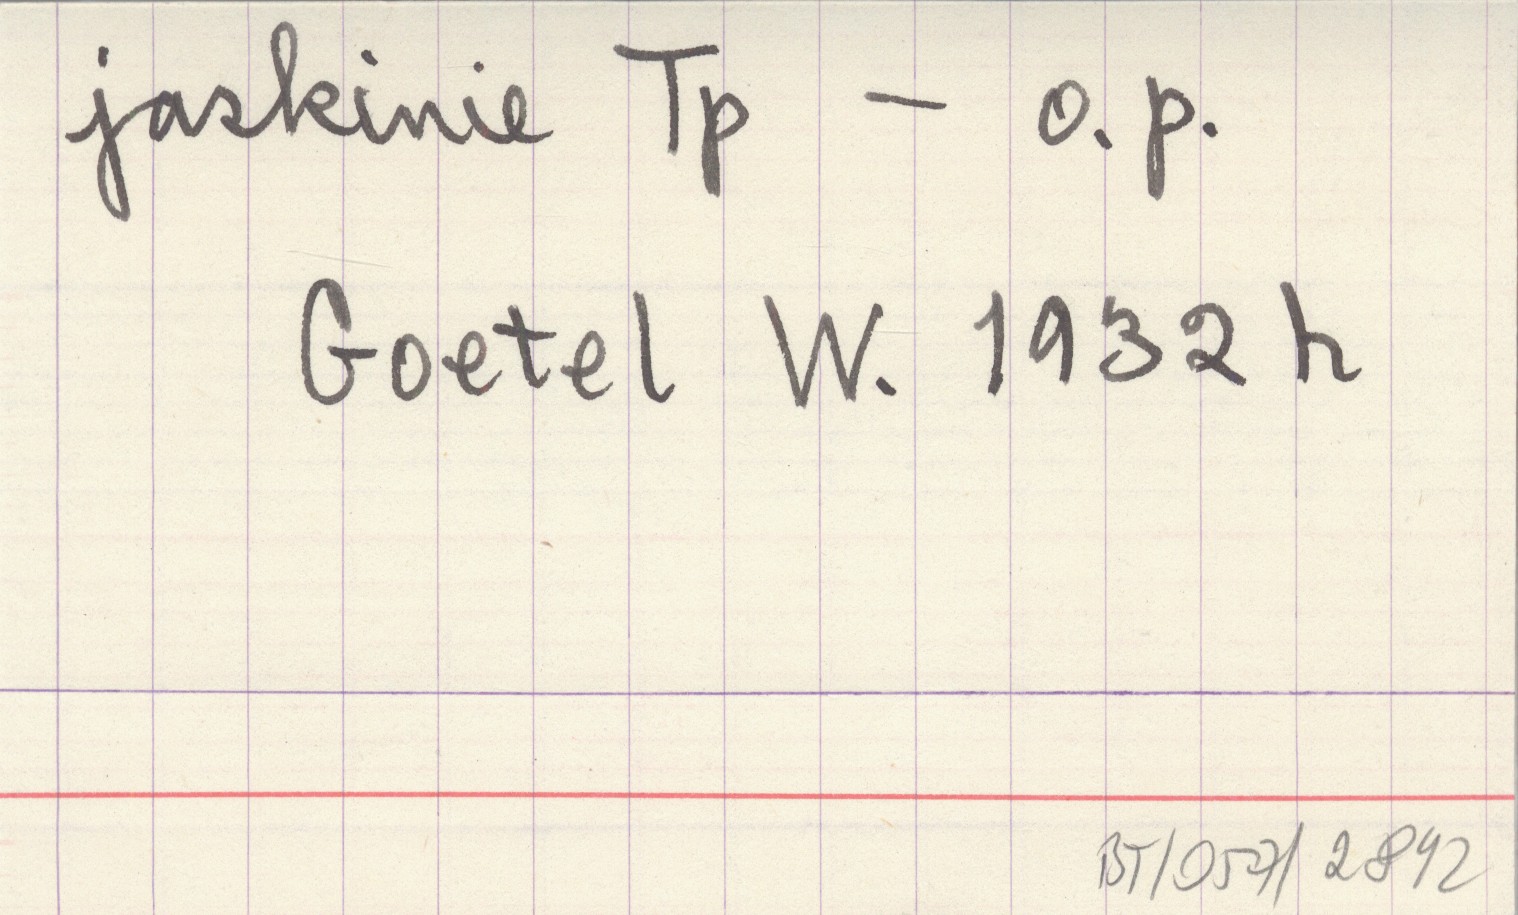 jaskinie Tp – o.p.
Goetel W. 1932 h
BT/057/2892